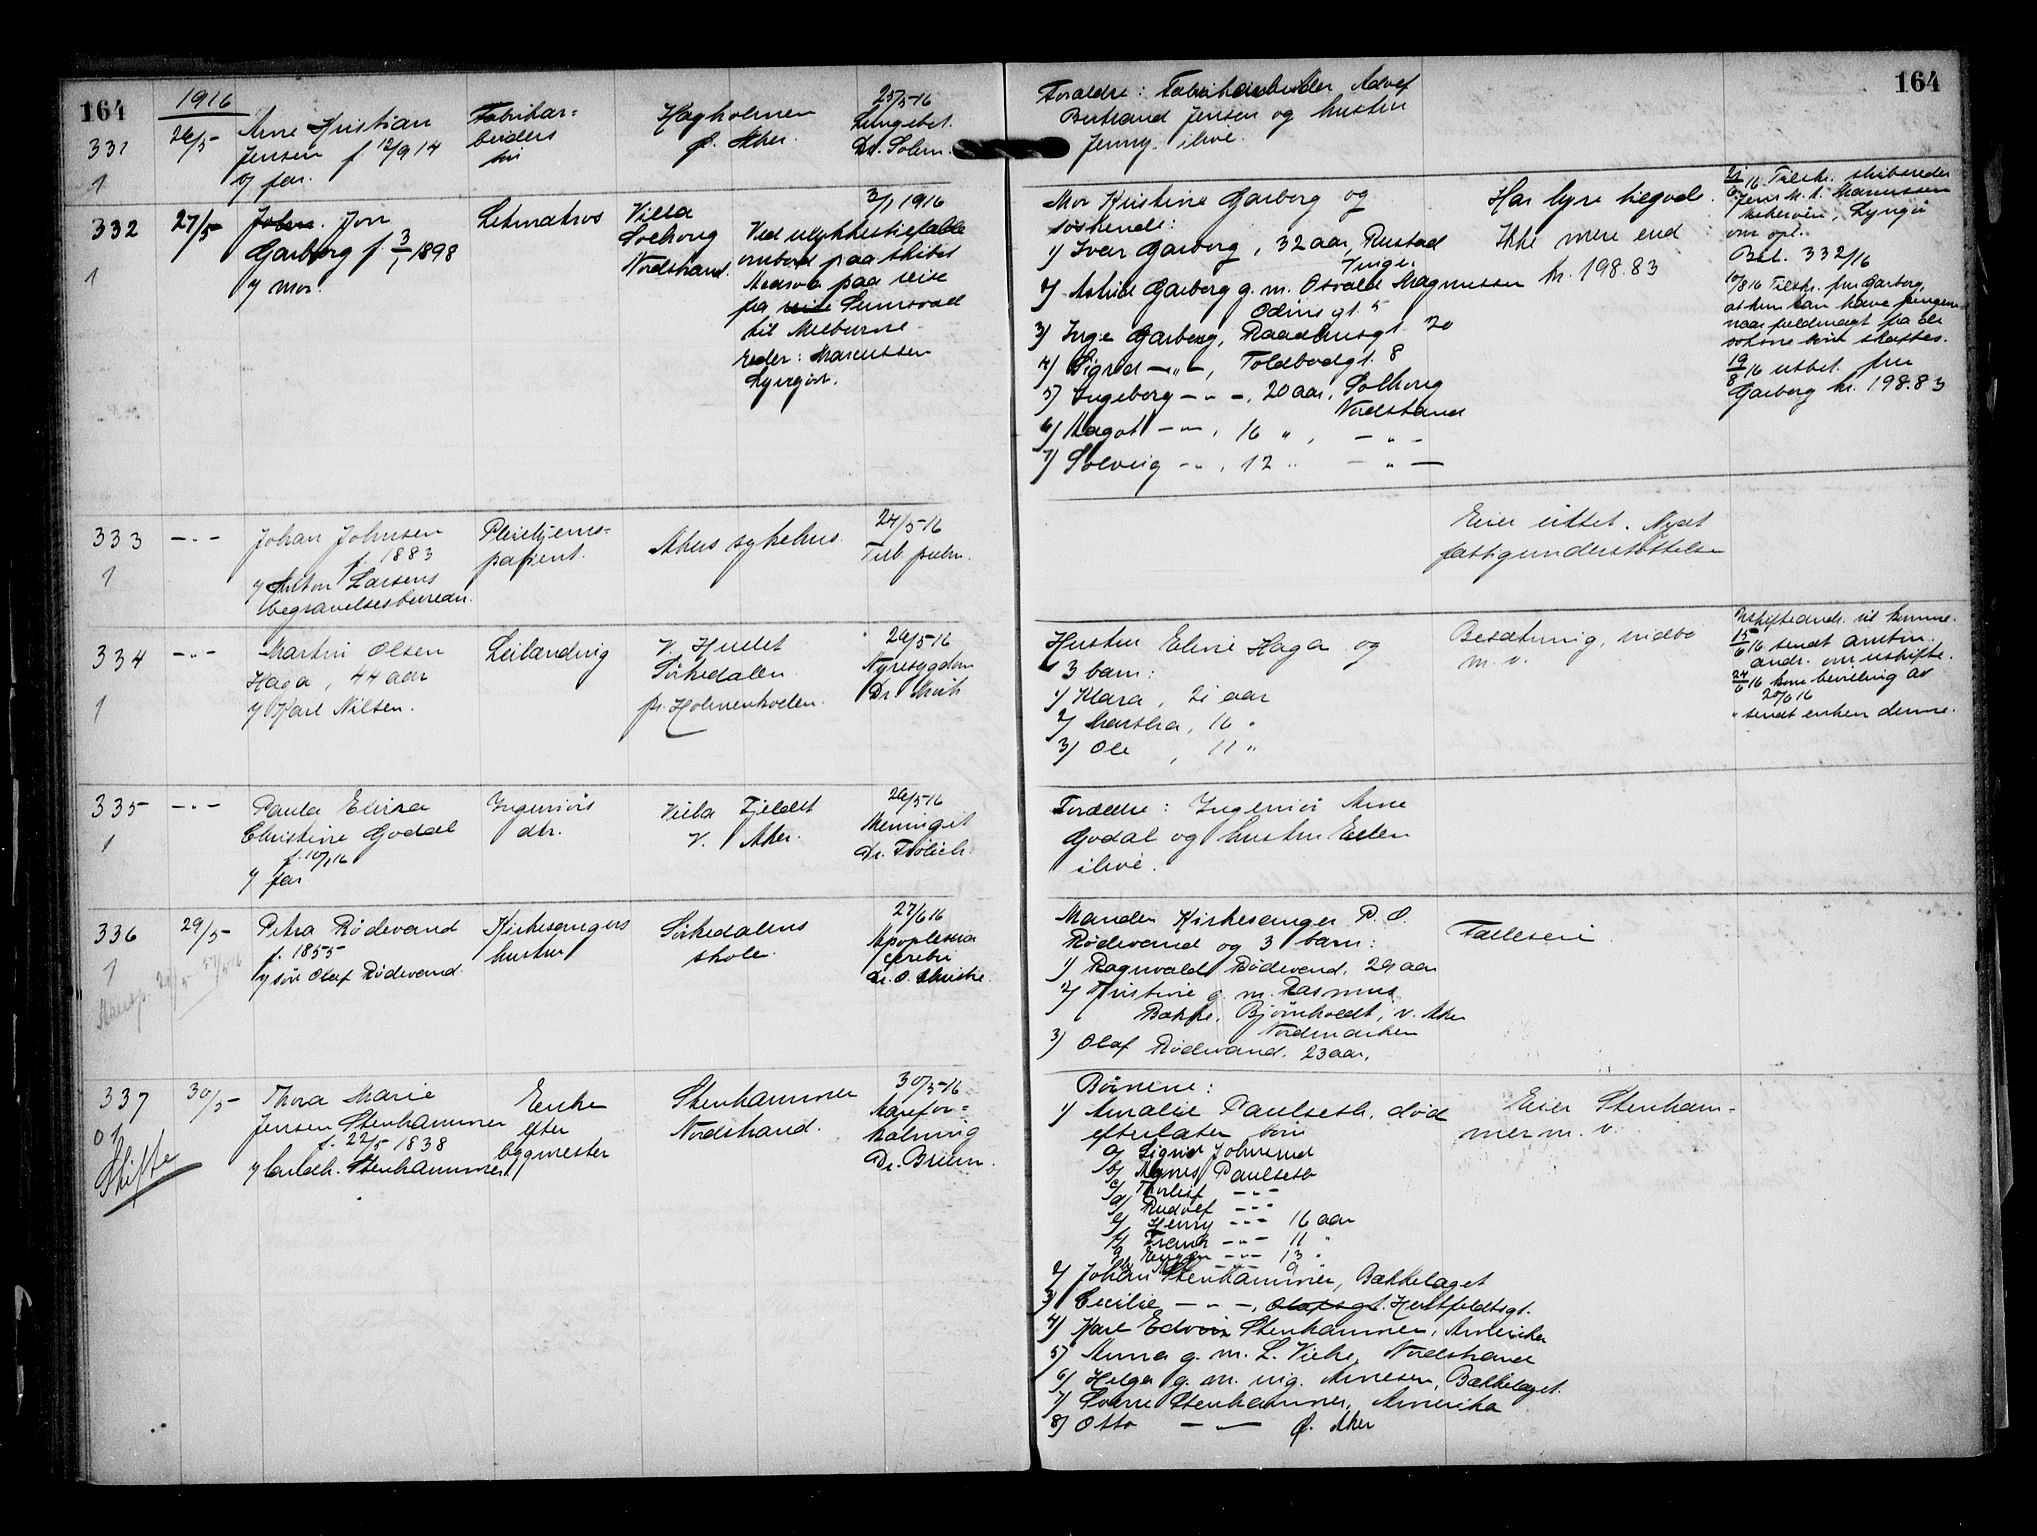 164
1916
331
1
26/5
Arne Kristian
Jensen f. 12/9 14
v/ far.
Fabrikar-
beiders
søn
Hagholmen
Ø. Aker.
25/5-16
Lungebet.
Dr. Solem.
164
Forældre: Fabrikarbeider Adolf
Bertrand Jensen og hustru
Jenny. ilive.
332
1
27/5
Jon
Garborg f. 3/1 1898
v/ mor.
Letmatros
Villa
Solhaug
Nordstrand.
3/1 1916
Ved ulykkestilfælde
ombord paa skibet
paa reise
fra
til Melburne
Reder: Marcussen
Lyngør.
Mor Kristine Garborg og
søskende:
1) Ivar Garborg, 32 aar, Rustad
Vinger
2) Astrid Garborg g. m. Osvald Magnussen
Odins gt. 5
3) Inge Garborg, Raadhusgt. 20
4) Sigrid — " —, Toldbodgt. 8
5) Ingeborg — " —, 20 aar, Solhaug
Nordstrand
6) Magot — " —, 16 " , — " —
7) Solveig — " —, 12 " — " —
Har hyre tilgode.
Ikke mere end
kr. 198.83
16 Tilskr. skibsreder
Jens M. A. Marcussen
Lyngør
om opl.
Bet. 332/16
10/8 16 Tilskr. fru Garborg,
at hun kan hæve pengene
naar fuldmagt fra de
voksne børn skaffes.
19/8 16 utbet. fru
Garborg kr. 198.83
333
1
— " —
Johan Johnsen
f. 1883
v/ Anton Larsens
begravelsesbureau.
Pleiehjems-
patient.
Akers sykehus.
24/5-16
Tub. pulm.
Eier intet. Nydt
fattigunderstøttelse
334
1
— " —
Martin Olsen
Haga, 44 aar
v/ Karl Nilsen.
Leilænding
V.
Sørkedalen
pr. Holmenkollen.
26/5-16
Nyresygdom
Dr.
Hustru Eline Haga og
3 barn:
1) Klara, 21 aar
2) Martha, 16 "
3) Ole, 11 "
Besætning, indbo
m. v.
15/6 16 sendt amtm.
andr. om uskifte.
24/6 16 kom bevilling av
20/6 16
" sendt enken denne.
335
1
— " —
Paula Elisa
Christine Godal
f. 10/1 16
v/ far
Ingeniørs
dtr.
Villa Fjeldet
V. Aker.
26/5-16
Meningit
Dr. Frölich.
Forældre: Ingeniør Arne
Godal og hustru Ellen
ilive.
336
1
29/5
Petra Rødevand
f. 1855
v/ søn Olaf Rødevand.
Kirkesangers
hustru
Sørkedalens
skole.
27/5 16
Apoplexia
cerebri
Dr. O. Christie.
Manden Kirkesanger P. O.
Rødevand og 3 barn:
1) Ragnvald Rødevand, 29 aar
2) Kristine g. m. Rasmus
Bakke, Bjørnholdt, V. Aker
Nordmarken
3) Olaf Rødevand. 23 aar.
Fælleseie
337
01
Skifte
30/5
Thora Marie
Jensen Stenhammer
f. 22/5 1838
v/ Carl Edv. Stenhammer
Enke
efter
bygmester
Stenhammer
Nordstrand.
30/5-16
Aarefor-
kalkning
Dr. Bruun.
Børnene:
1) Amalie Paulseth, død
efterlater børn
a) Sigrid Johnsrud
b) Agnes Paulseth
c) Thorleif — " —
d) Rudolf — " —
e) Henry — " — 16 aar
f) Frank — " — 11 "
g) — " — 13 "
2) Johan Stenhammer, Bækkelaget
3) Cecilie — " —, Olafsgt. Herslebsgt.
4) Karl Edvin Stenhammer, Amerika
5) Anna g. m. L. Vike, Nordstrand
6) Helga g. m. ing. Arnesen, Bækkelaget.
7) Sverre Stenhammer, Amerika
8) Otto — " — Ø. Aker
Eier Stenham-
mer m. v.